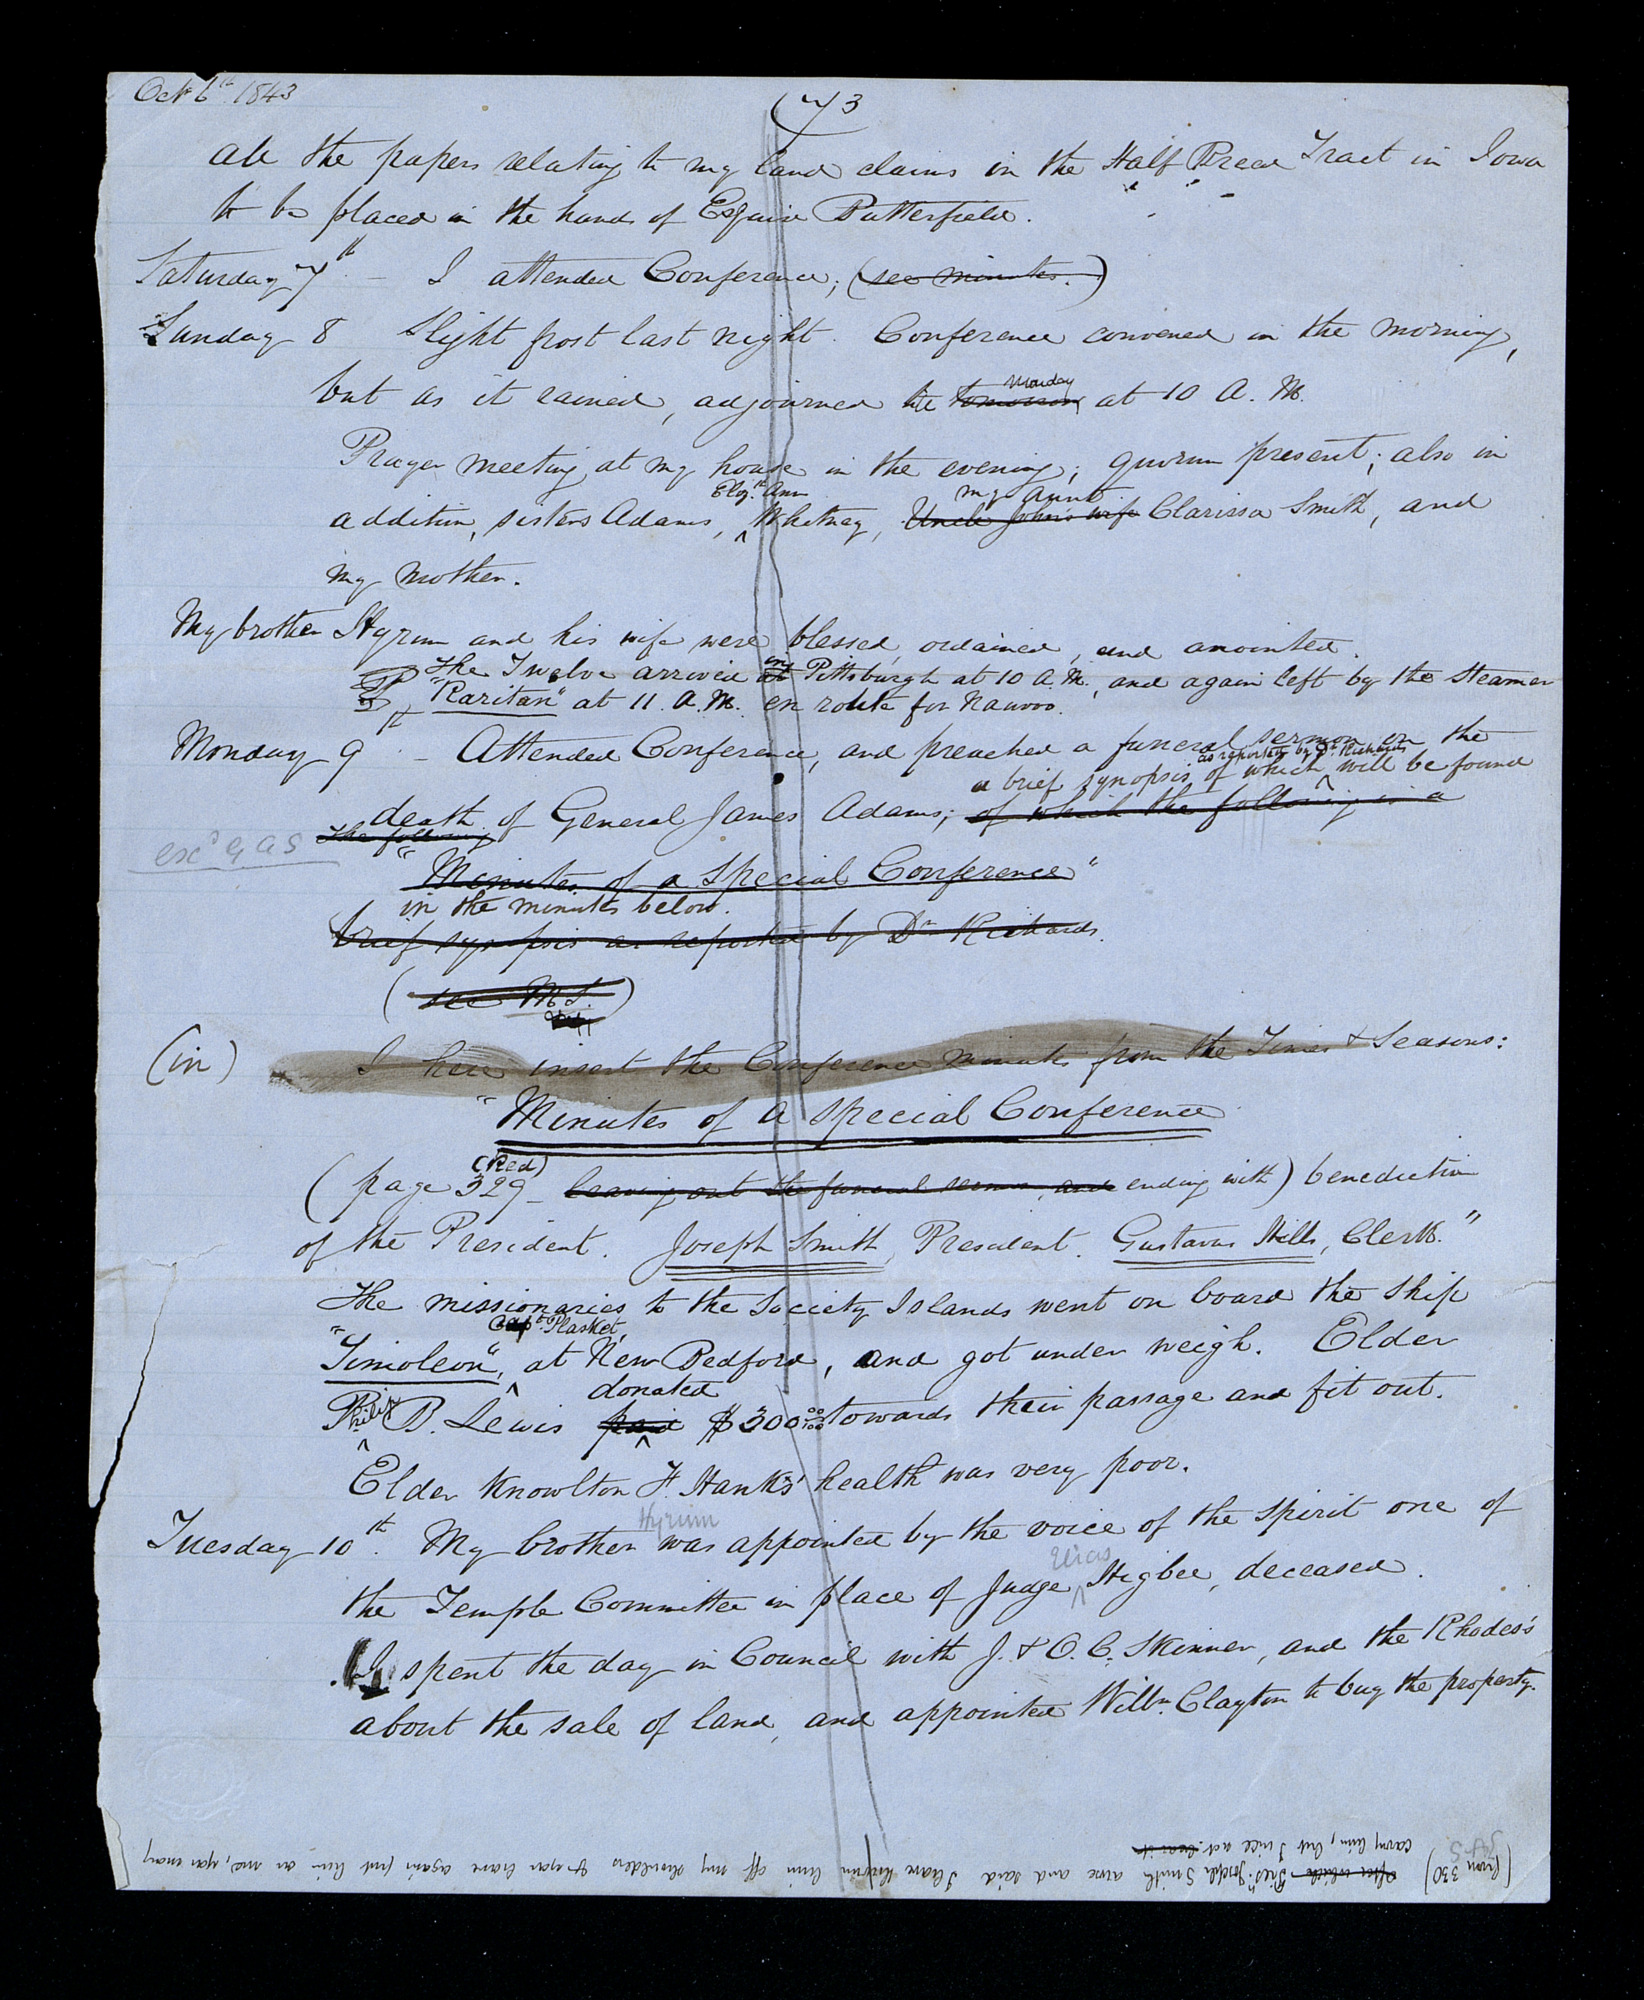 Oct 6th. 1843
73
all the papers relating to my land claims in the Half Breed Tract in Iowa
to be placed in the hands of Esquire Butterfield.
Saturday 7th — I attended Conference; (see minutes.)
Sunday 8 Slight frost last night. Conference convened in the morning,
Monday
but as it rained, adjourned till tomorrow at 10 A. M.
Prayer meeting at my house in the evening; quorum present; also in
Elizth. Ann my aunt
addition, sisters Adams, ^ Whitney, Uncle John's wife Clarissa Smith, and
my mother.
My brother Hyrum and his wife were blessed, ordained, and anointed.
The Twelve arrived at in Pittsburgh at 10 A. M., and again left by the Steamer
"Raritan" at 11. A. M. en route for Nauvoo.
Monday 9th — Attended Conference, and preached a funeral sermon on the
as reported by Dr. Richards
a brief synopsis of which ^ will be found
death of General James Adams; of which the following is a
The following
exd G A S
"Minutes of a Special Conference"
in the minutes below.
brief synopsis as reported by Dr Richards.
(see M.S.)
(in) I here insert the Conference minutes from the Times & Seasons:
"Minutes of a special Conference
(Red)
(page 329 — leaving out the funeral sermon, and ending with) benediction
of the President. Joseph Smith, President. Gustavus Hills, Clerk."
The missionaries to the Society Islands went on board the ship
Capt. Plasket,
"Timoleon", ^ at New Bedford, and got under weigh. Elder
donated
Philip B. Lewis paid ^ $300 00/100 towards their passage and fit out.
Elder Knowlton F. Hanks' health was very poor.
Hyrum
Tuesday 10th. My brother was appointed by the voice of the spirit one of
Elias
the Temple Committee in place of Judge ^ Higbee, deceased.
I spent the day in Council with J. & O. C. Skinner, and the Rhodes's
about the sale of land, and appointed Willm. Clayton to buy the property.
(from 330) G A S
after which Prest. Joseph Smith arose and said I have thrown him off my shoulders & you have again put him on me, you may
carry him, but I will not. bear it